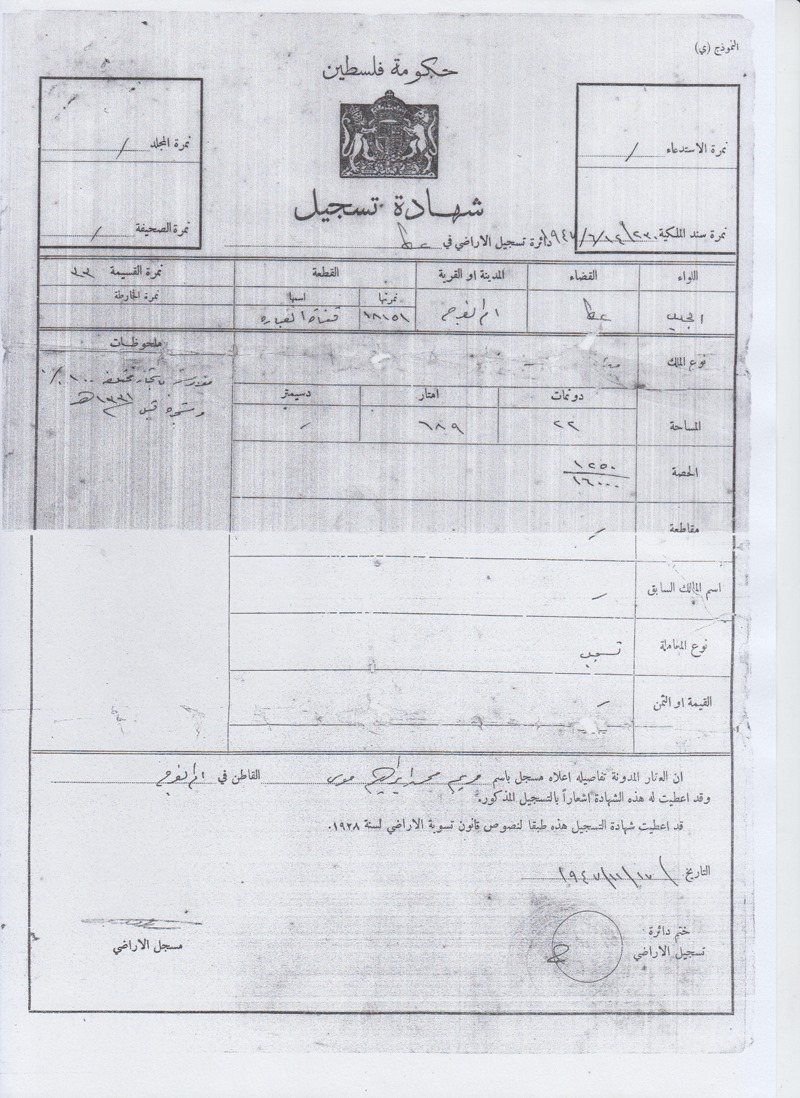 النموذج (ي)
حكومة فلسطين
نمرة الاستدعاء /
نمرة المجلد /
شهادة تسجيل
نمرة سند الملكية
نمرة الصحيفة /
دائرة تسجيل الاراضي في عكا
اللواء القضاء المدينة او القرية القطعة نمرة القسيمة ٣٣
نمرتها اسمها نمرة الخارطة
الجليل عكا ام الفرج ١٨١٥١
نوع الملك ملحوظات
دونمات امتار دسيمتر
المساحة ٢٢ ٦٨٩ -
الحصة ١٢٥٠
١٦٠٠٠
مقاطعة -
اسم المالك السابق -
نوع المعاملة تسجيل
القيمة او الثمن -
ان العقار المدونة تفاصيله اعلاه مسجل باسم مريم محمد ابراهيم موسى القاطن في ام الفرج
وقد اعطيت له هذه الشهادة اشعاراً بالتسجيل المذكور.
قد اعطيت شهادة التسجيل هذه طبقا لنصوص قانون تسوية الاراضي لسنة ١٩٢٨.
التاريخ ١٩٤٧/١١/١٧
ختم دائرة
تسجيل الاراضي
مسجل الاراضي